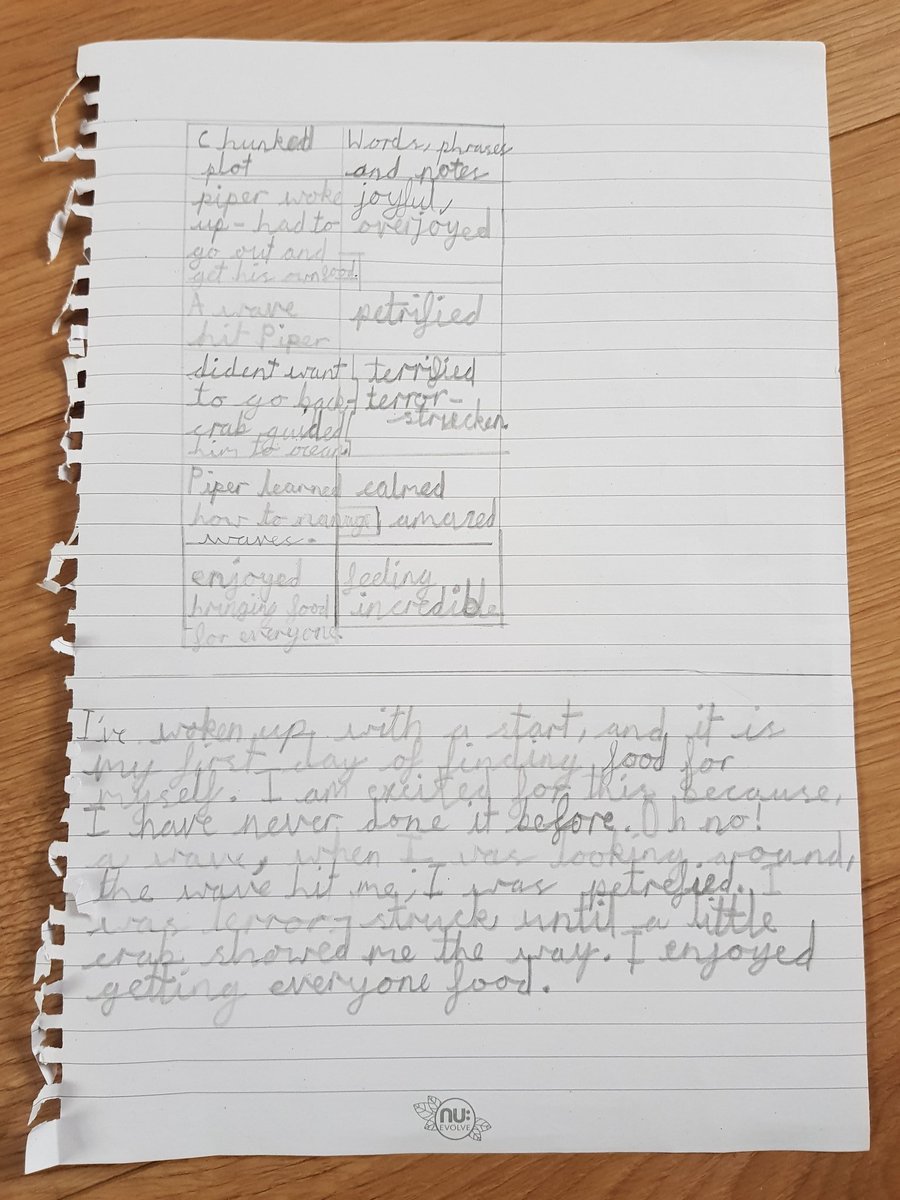 Chunked Words, phrases
plot and notes
piper woke joyful,
up - had to overjoyed
go out and
get his own food.
A wave petrified
hit Piper
dident want terrified
to go back- terror-
crab guided -struecken
him to ocean
Piper learned calmed
how to manage amazed
waves.
enjoyed feeling
bringing food incredible
for everyone.
I've woken up with a start, and it is
my first day of finding food for
myself. I am excited for this because,
I have never done it before. Oh no!
a wave, when I was looking around,
the wave hit me, I was petrefied. I
was terror-struck until a little
crab showed me the way. I enjoyed
getting everyone food.
nu:
EVOLVE